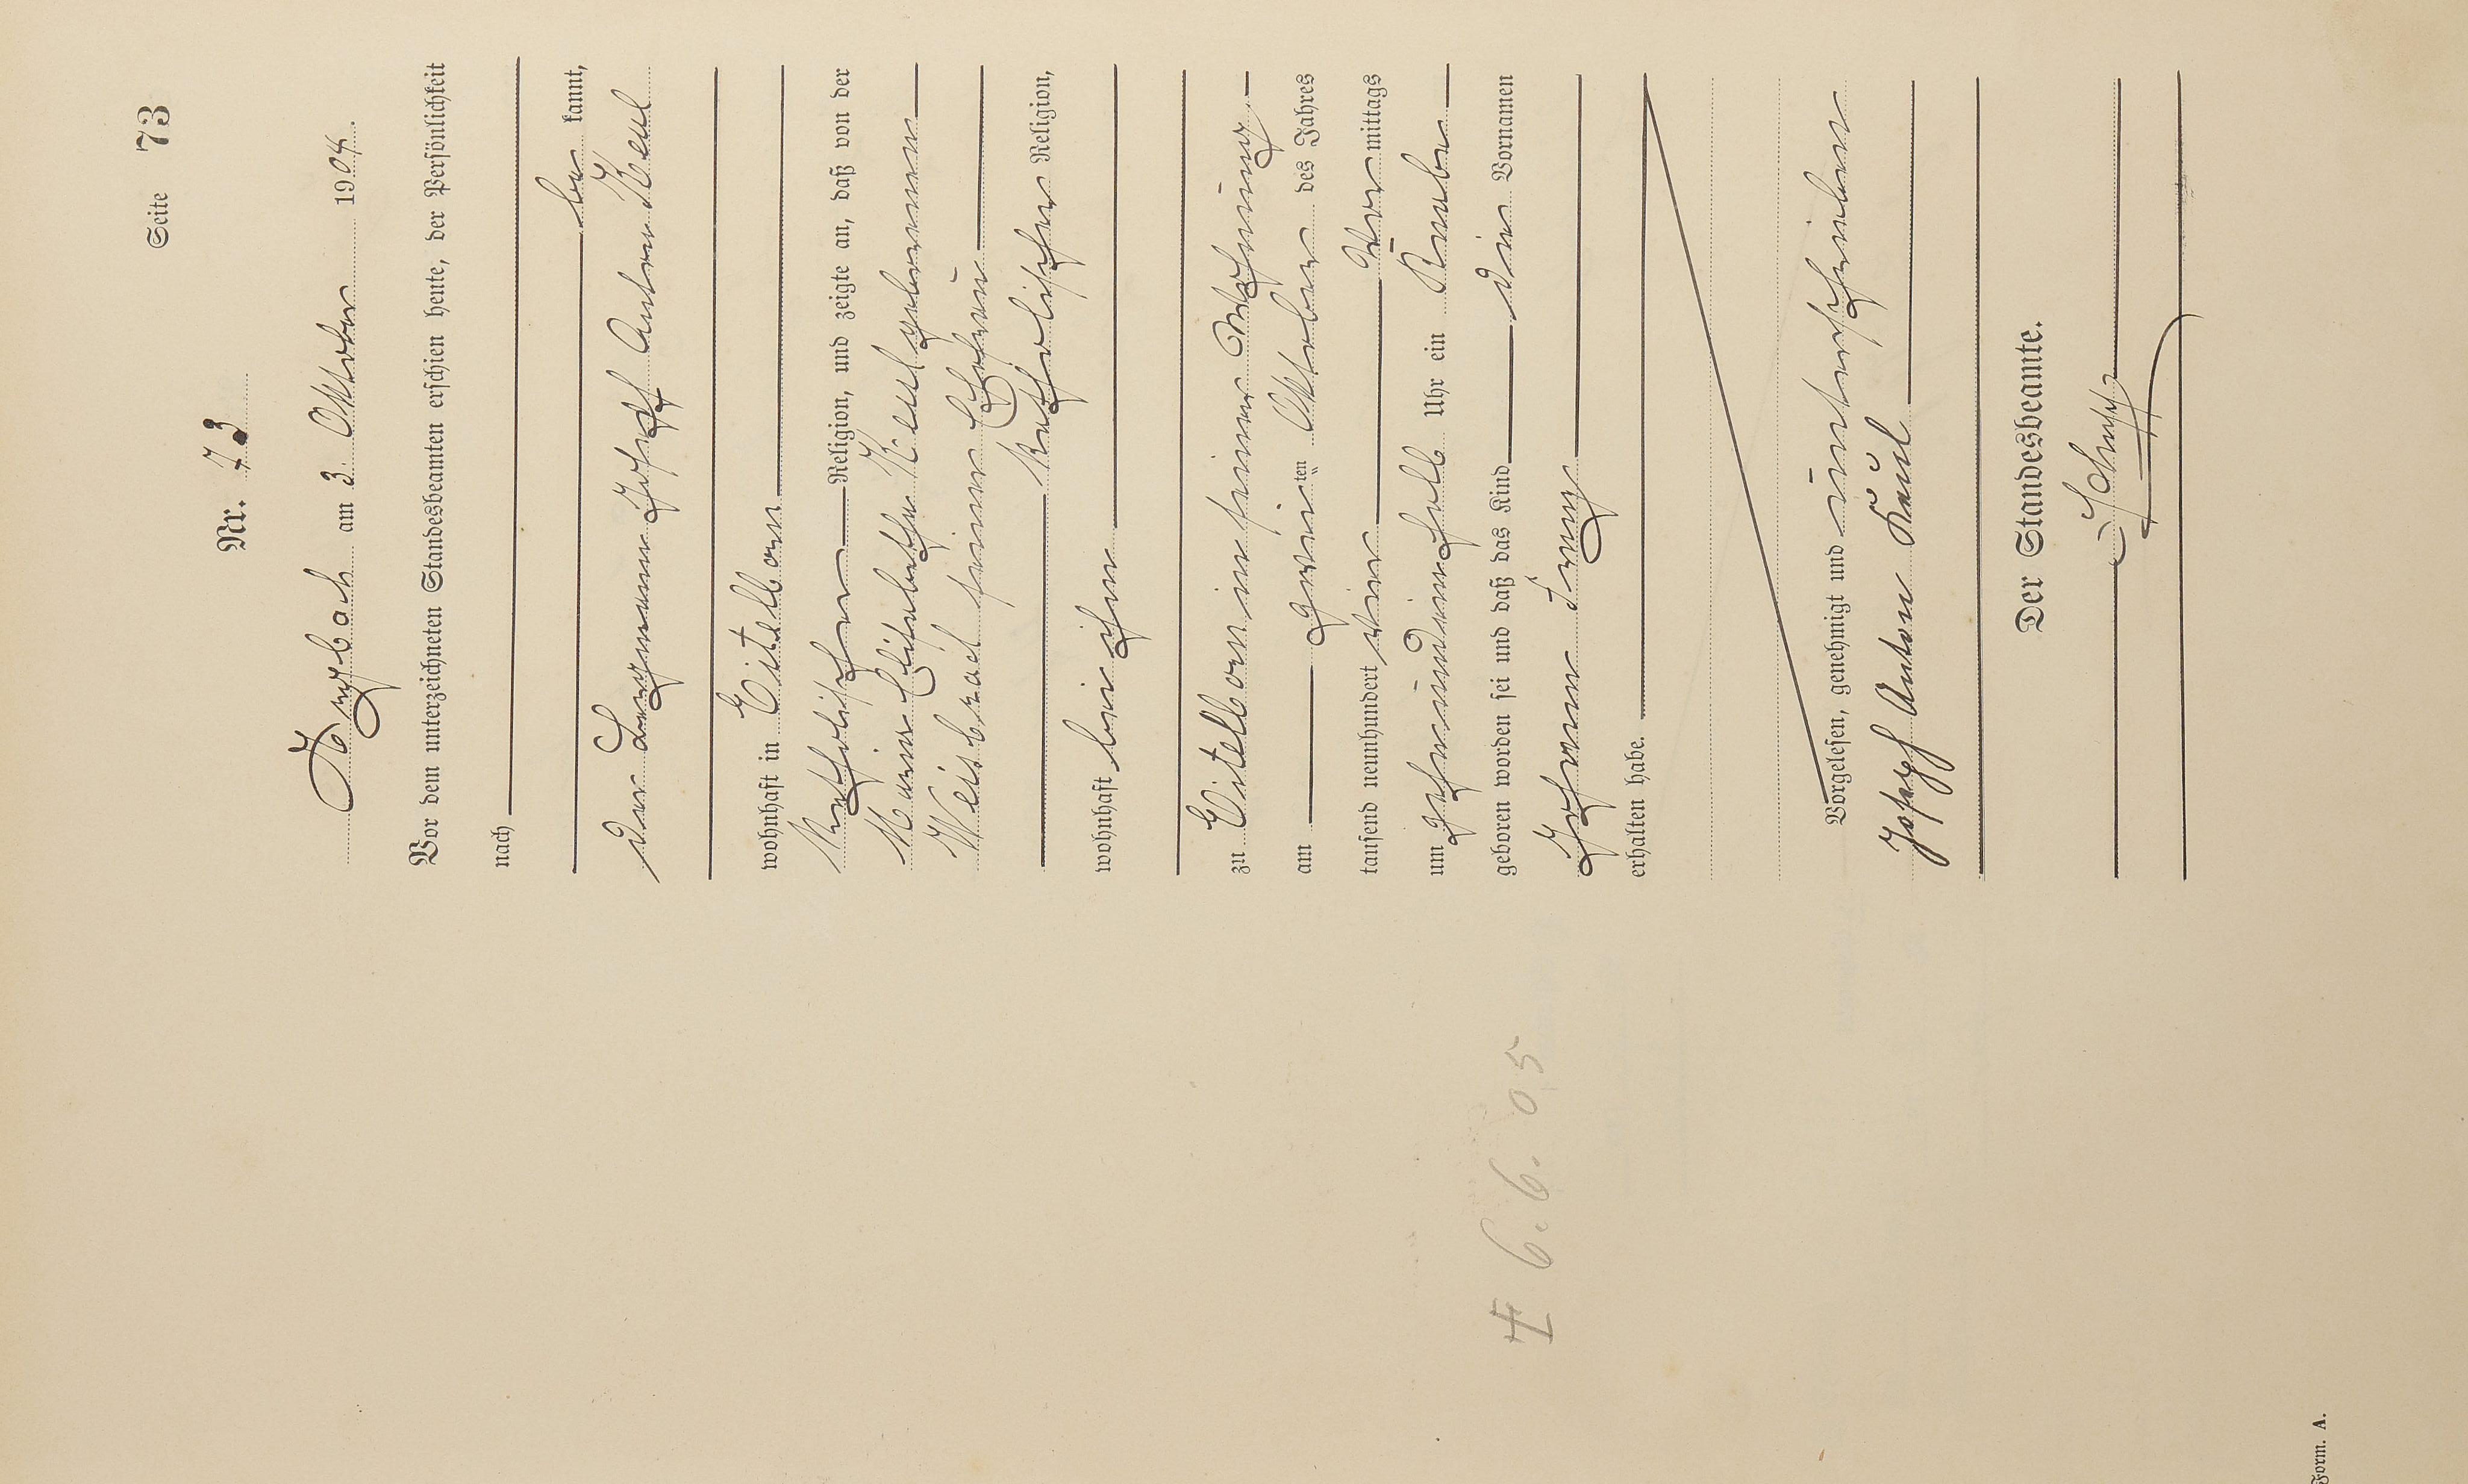 Seite 73
Nr. 73
Arzbach am 3. Oktober 1904.
Vor dem unterzeichneten Standesbeamten erschien heute, der Persönlichkeit
nach
be kannt,
der Bergmann Joseph Anton Keul
wohnhaft in Eitelborn
katholischer Religion, und zeigte an, daß von der
Maria Elisabetha Keul geborenen
Weisbrod seiner Ehefrau
katholischer Religion,
wohnhaft bei ihm
zu Eitelborn in seiner Wohnung
am zweiten Oktober des Jahres
tausend neunhundert vier Vor mittags
um zehneinhalb Uhr ein Knabe
geboren worden sei und daß das Kind die Vornamen
Johann Franz
erhalten habe.
Vorgelesen, genehmigt und unterschrieben
Joseph Anton Keul
Der Standesbeamte.
Schupp
† 6.6.05
Form. A.